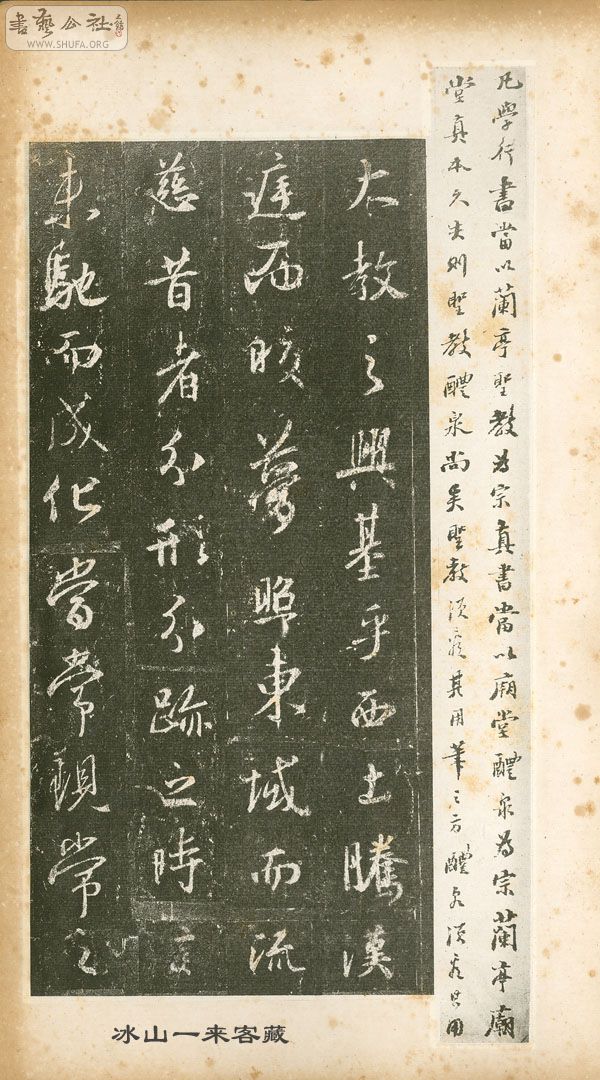 書藝公社
WWW.SHUFA.ORG
凡學行書當以蘭亭聖教為宗真書當以廟堂醴泉為宗蘭亭廟
堂真本久失則聖教醴泉尚矣聖教須其用筆之方醴泉須其用
大教之興基乎西土騰漢
庭而皎夢照東域而流
慈昔者分形分跡之時言
未馳而成化當常現常之
冰山一来客藏